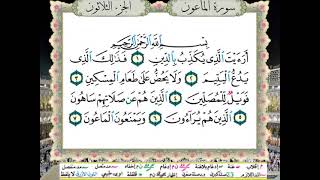 سورة الماعون الجزء الثلاثون
بِسْمِ ٱللَّهِ ٱلرَّحْمَٰنِ ٱلرَّحِيمِ
أَرَءَيْتَ ٱلَّذِى يُكَذِّبُ بِٱلدِّينِ ١ فَذَٰلِكَ ٱلَّذِى
يَدُعُّ ٱلْيَتِيمَ ٢ وَلَا يَحُضُّ عَلَىٰ طَعَامِ ٱلْمِسْكِينِ ٣
فَوَيْلٌ لِّلْمُصَلِّينَ ٤ ٱلَّذِينَ هُمْ عَن صَلَاتِهِمْ سَاهُونَ
٥ ٱلَّذِينَ هُمْ يُرَآءُونَ ٦ وَيَمْنَعُونَ ٱلْمَاعُونَ ٧